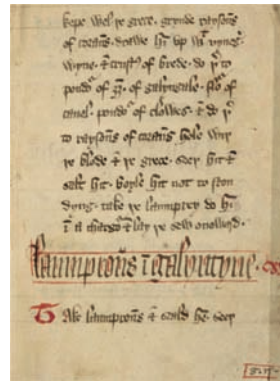 kepe wel þe grece. grynde raysons
of corans. drawe hē up wᵗ vyneḡ.
wyne. & crustꝭ of brede. do þ̉to
poudʳ of gꝫ. of galyngale. floʳ of
canel. poudʳ of clowes. & do þ̉
to raysons of corans hole wiþ
þe blode & þe grece. seeþ hit &
salt hit. boyle hit not to ston
dyng. take þe laumprey do hī
ī a chargoʳ & lay þe sew onoward.
Laumprons ī galyntyne.
Take laumprons & scald hē. seeþ